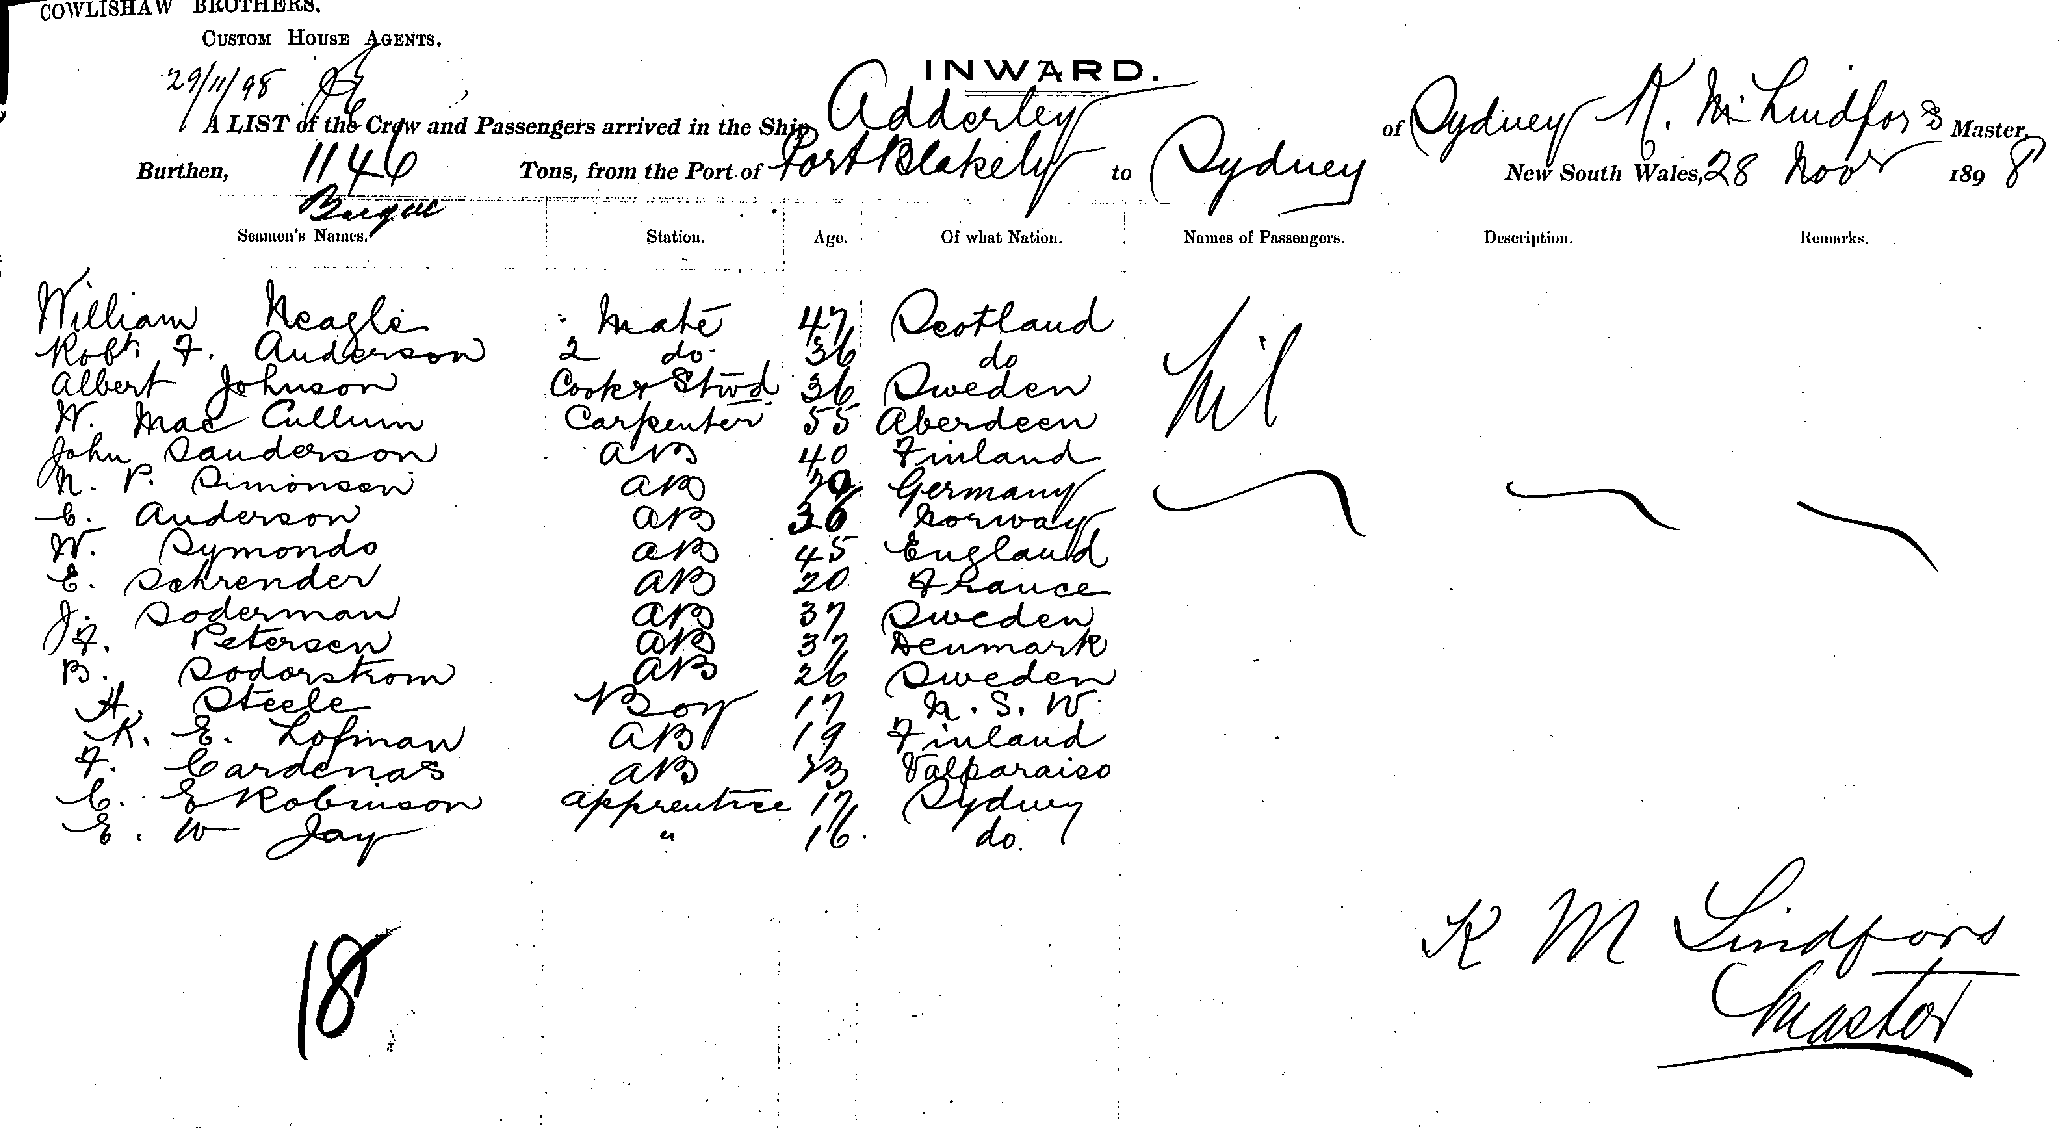 COWLISHAW BROTHERS.
CUSTOM HOUSE AGENTS.
29/11/98
INWARD.
A LIST of the Crew and Passengers arrived in the Ship Adderley of Sydney K. M. Lindfors Master,
Burthen, 1146 Tons, from the Port of Port Blakely to Sydney New South Wales, 28 Novr 1898
Barque
Seamen's Names. Station. Age. Of what Nation. Names of Passengers. Description. Remarks.
William Neagle Mate 47 Scotland Nil
Robt. F. Anderson 2 do. 36 do
Albert Johnson Cook & Stwd 36 Sweden
W. Mac Cullum Carpenter 55 Aberdeen
John Sanderson AB 40 Finland
N. P. Simonsen AB Germany
C. Anderson AB 36 Norway
W. Symonds AB 45 England
E. Schrender AB 20 France
J. Soderman AB 37 Sweden
F. Petersen AB 37 Denmark
B. Soderstrom AB 26 Sweden
H. Steele Boy 17 N. S. W.
K. E. Lofman AB 19 Finland
F. Cardenas AB 23 Valparaiso
C. E Robinson apprentice 17 Sydney
E. W Jay " 16. do.
18
K M Lindfors
Master